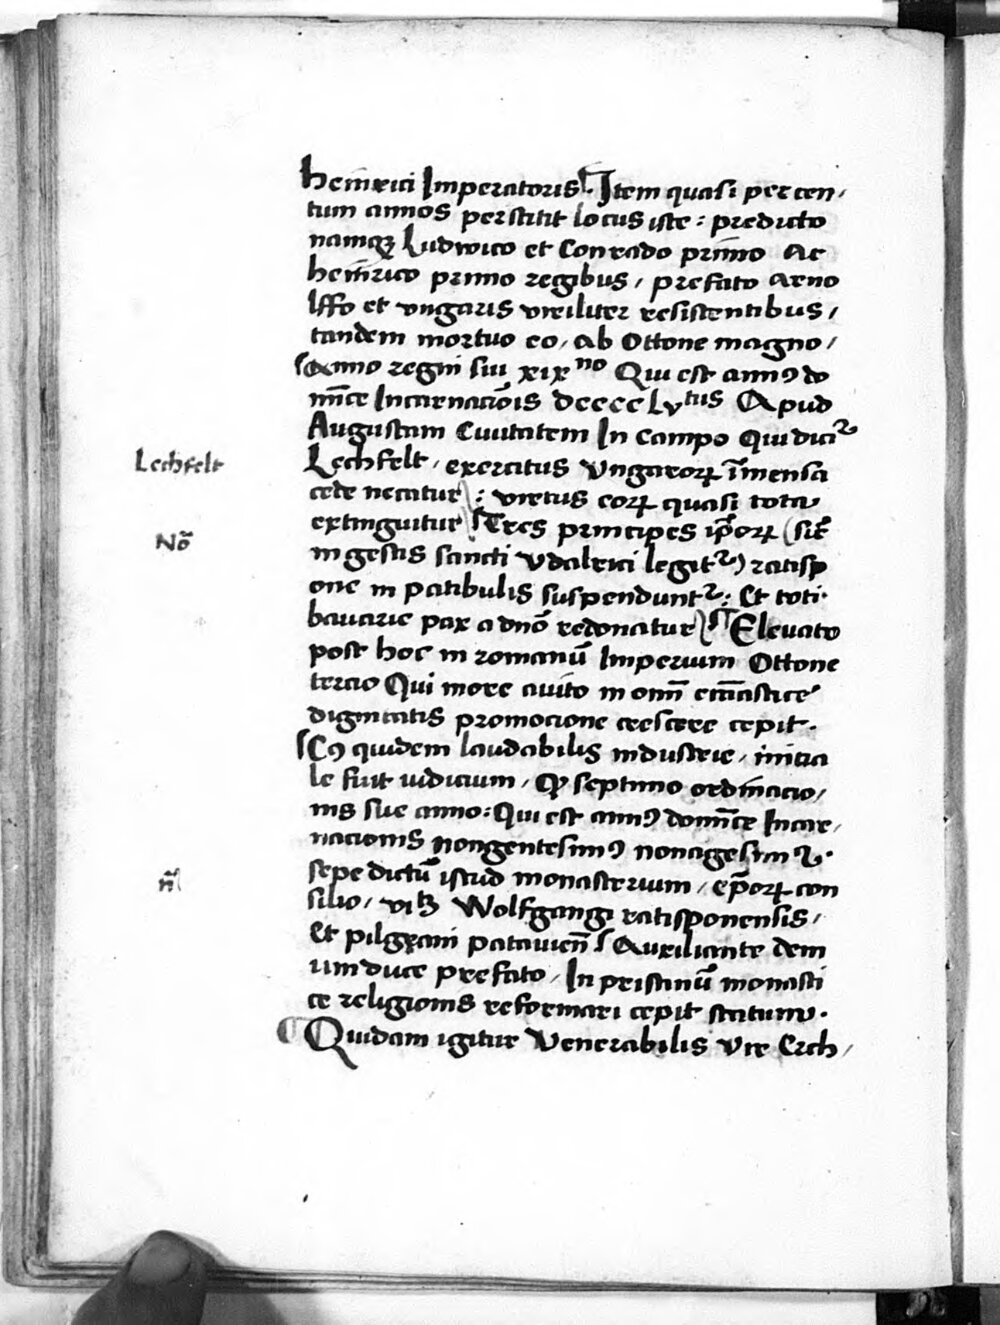 heinrici Imperatoris. Item quasi per cen,
tum annos perstitit locus iste: predicto
namqꝫ Ludwico et Conrado primo Ac
heinrico primo regibus, prefato Arno
lffo et vngaris viriliter resistentibus,
tandem mortuo eo, Ab Ottone magno,
Anno regni sui xix no Qui est annꝰ do
mīce Incarnacōis dccccLv tus Apud
Augustam Ciuitatem In campo Qui diciꝛ
Lechfelt
Lechfelt, exercitus Vngarorꝝ īmensa
cede necatur: virtus eorꝝ quasi tota
extinguitur Tres principes ip̄orꝝ (sic̄
Nō
in gestis sancti Vdalrici legitꝛ) ratisp
one in patibulis suspenduntꝛ: Et toti
bauarie pax a dnō redonatur Eleuato
post hoc in romanū Imperium Ottone
tercio Qui more auito in omī ecc̄iastice
dignitatis promocione crescere cepit.
Cꝰ quidem laudabilis industrie, inicia
le fuit iudicium, Qꝫ septimo ordinacio,
nis sue anno: Qui est annꝰ domīce Incar,
nacionis nongentesimꝰ nonagesimꝰ
sepe dictū istud monasterium, ep̄orꝝ con
silio, vitꝫ Wolfgangi ratisponensis,
Et pilgrami patauien̄ Auxiliante dem
um duce prefato, In pristinū monasti
ce religionis reformari cepit statum.
Quidam igitur Venerabilis Vir Erch,